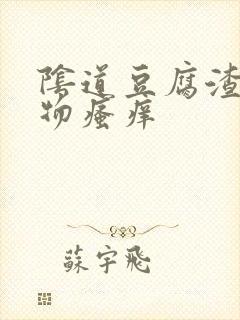 陰道豆腐渣
物瘙痒
蘇宇飛